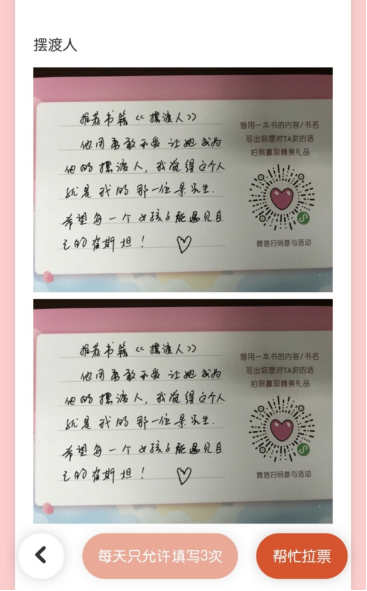 摆渡人
推荐书籍《摆渡人》
他用勇敢和爱让她成为
他的摆渡人,我觉得这个人
就是我的那一位景先生.
希望每一个女孩子能遇见自
己的崔斯坦!
借用一本书的内容/书名
写出您想对TA说的话
拍照赢取精美礼品
微信扫码参与活动
推荐书籍《摆渡人》
他用勇敢和爱让她成为
他的摆渡人,我觉得这个人
就是我的那一位景先生.
希望每一个女孩子能遇见自
己的崔斯坦!
借用一本书的内容/书名
写出您想对TA说的话
拍照赢取精美礼品
微信扫码参与活动
每天只允许填写3次
帮忙拉票